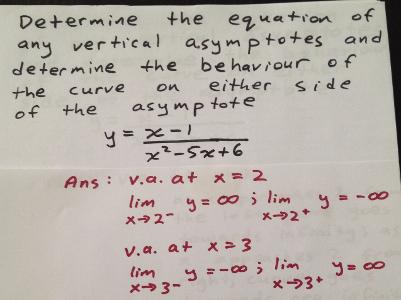 Determine the equation of
any vertical asymptotes and
determine the behaviour of
the curve on either side
of the asymptote
y = x-1 / x²-5x+6
Ans: v.a. at x = 2
lim x→2⁻ y = ∞ ; lim x→2⁺ y = -∞
v.a. at x = 3
lim x→3⁻ y = -∞ ; lim x→3⁺ y = ∞